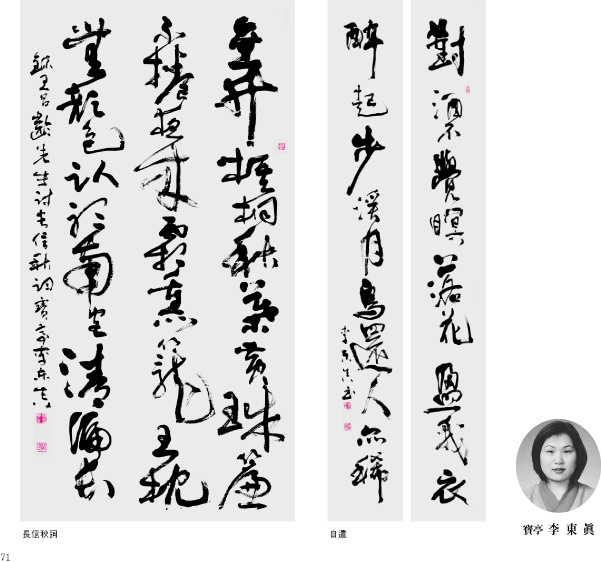 對酒不覺暝落花盈我衣
醉起步溪月鳥還人亦稀
李東眞
金井梧桐秋葉黃珠簾
不捲夜來霜熏籠玉枕
無顏色臥聽南宮清漏長
錄王昌齡先生詩長信秋詞寶亭李東眞
長信秋詞
自遣
寶亭 李東眞
71